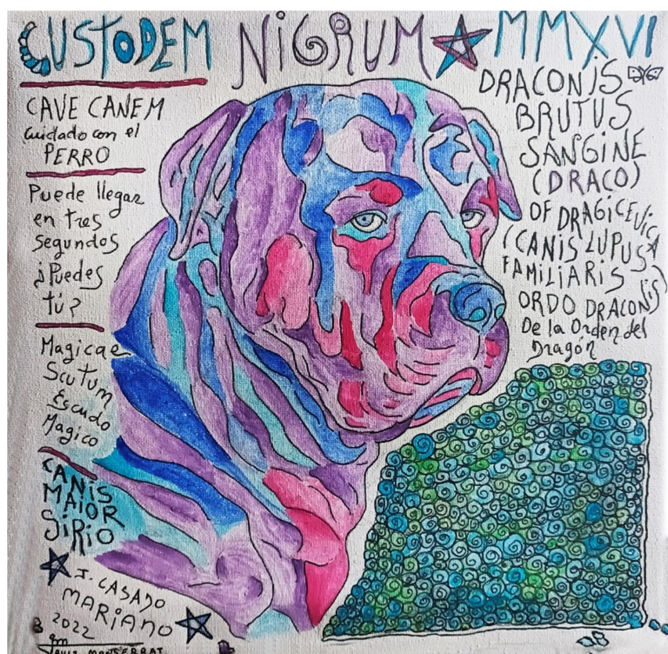 CUSTODEM NIGRUM MMXVI
CAVE CANEM
Cuidado con el
PERRO
Puede llegar
en tres
segundos
¿Puedes
tú?
Magicae
Scutum
Escudo
Magico
CANIS
MAIOR
SIRIO
J. CASADO
MARIANO
2022
DRACONIS
BRUTUS
SANGINE
(DRACO)
OF DRAGICEVICA
(CANIS LUPUS
FAMILIARIS
ORDO DRACONIS)
De la Orden del
Dragón